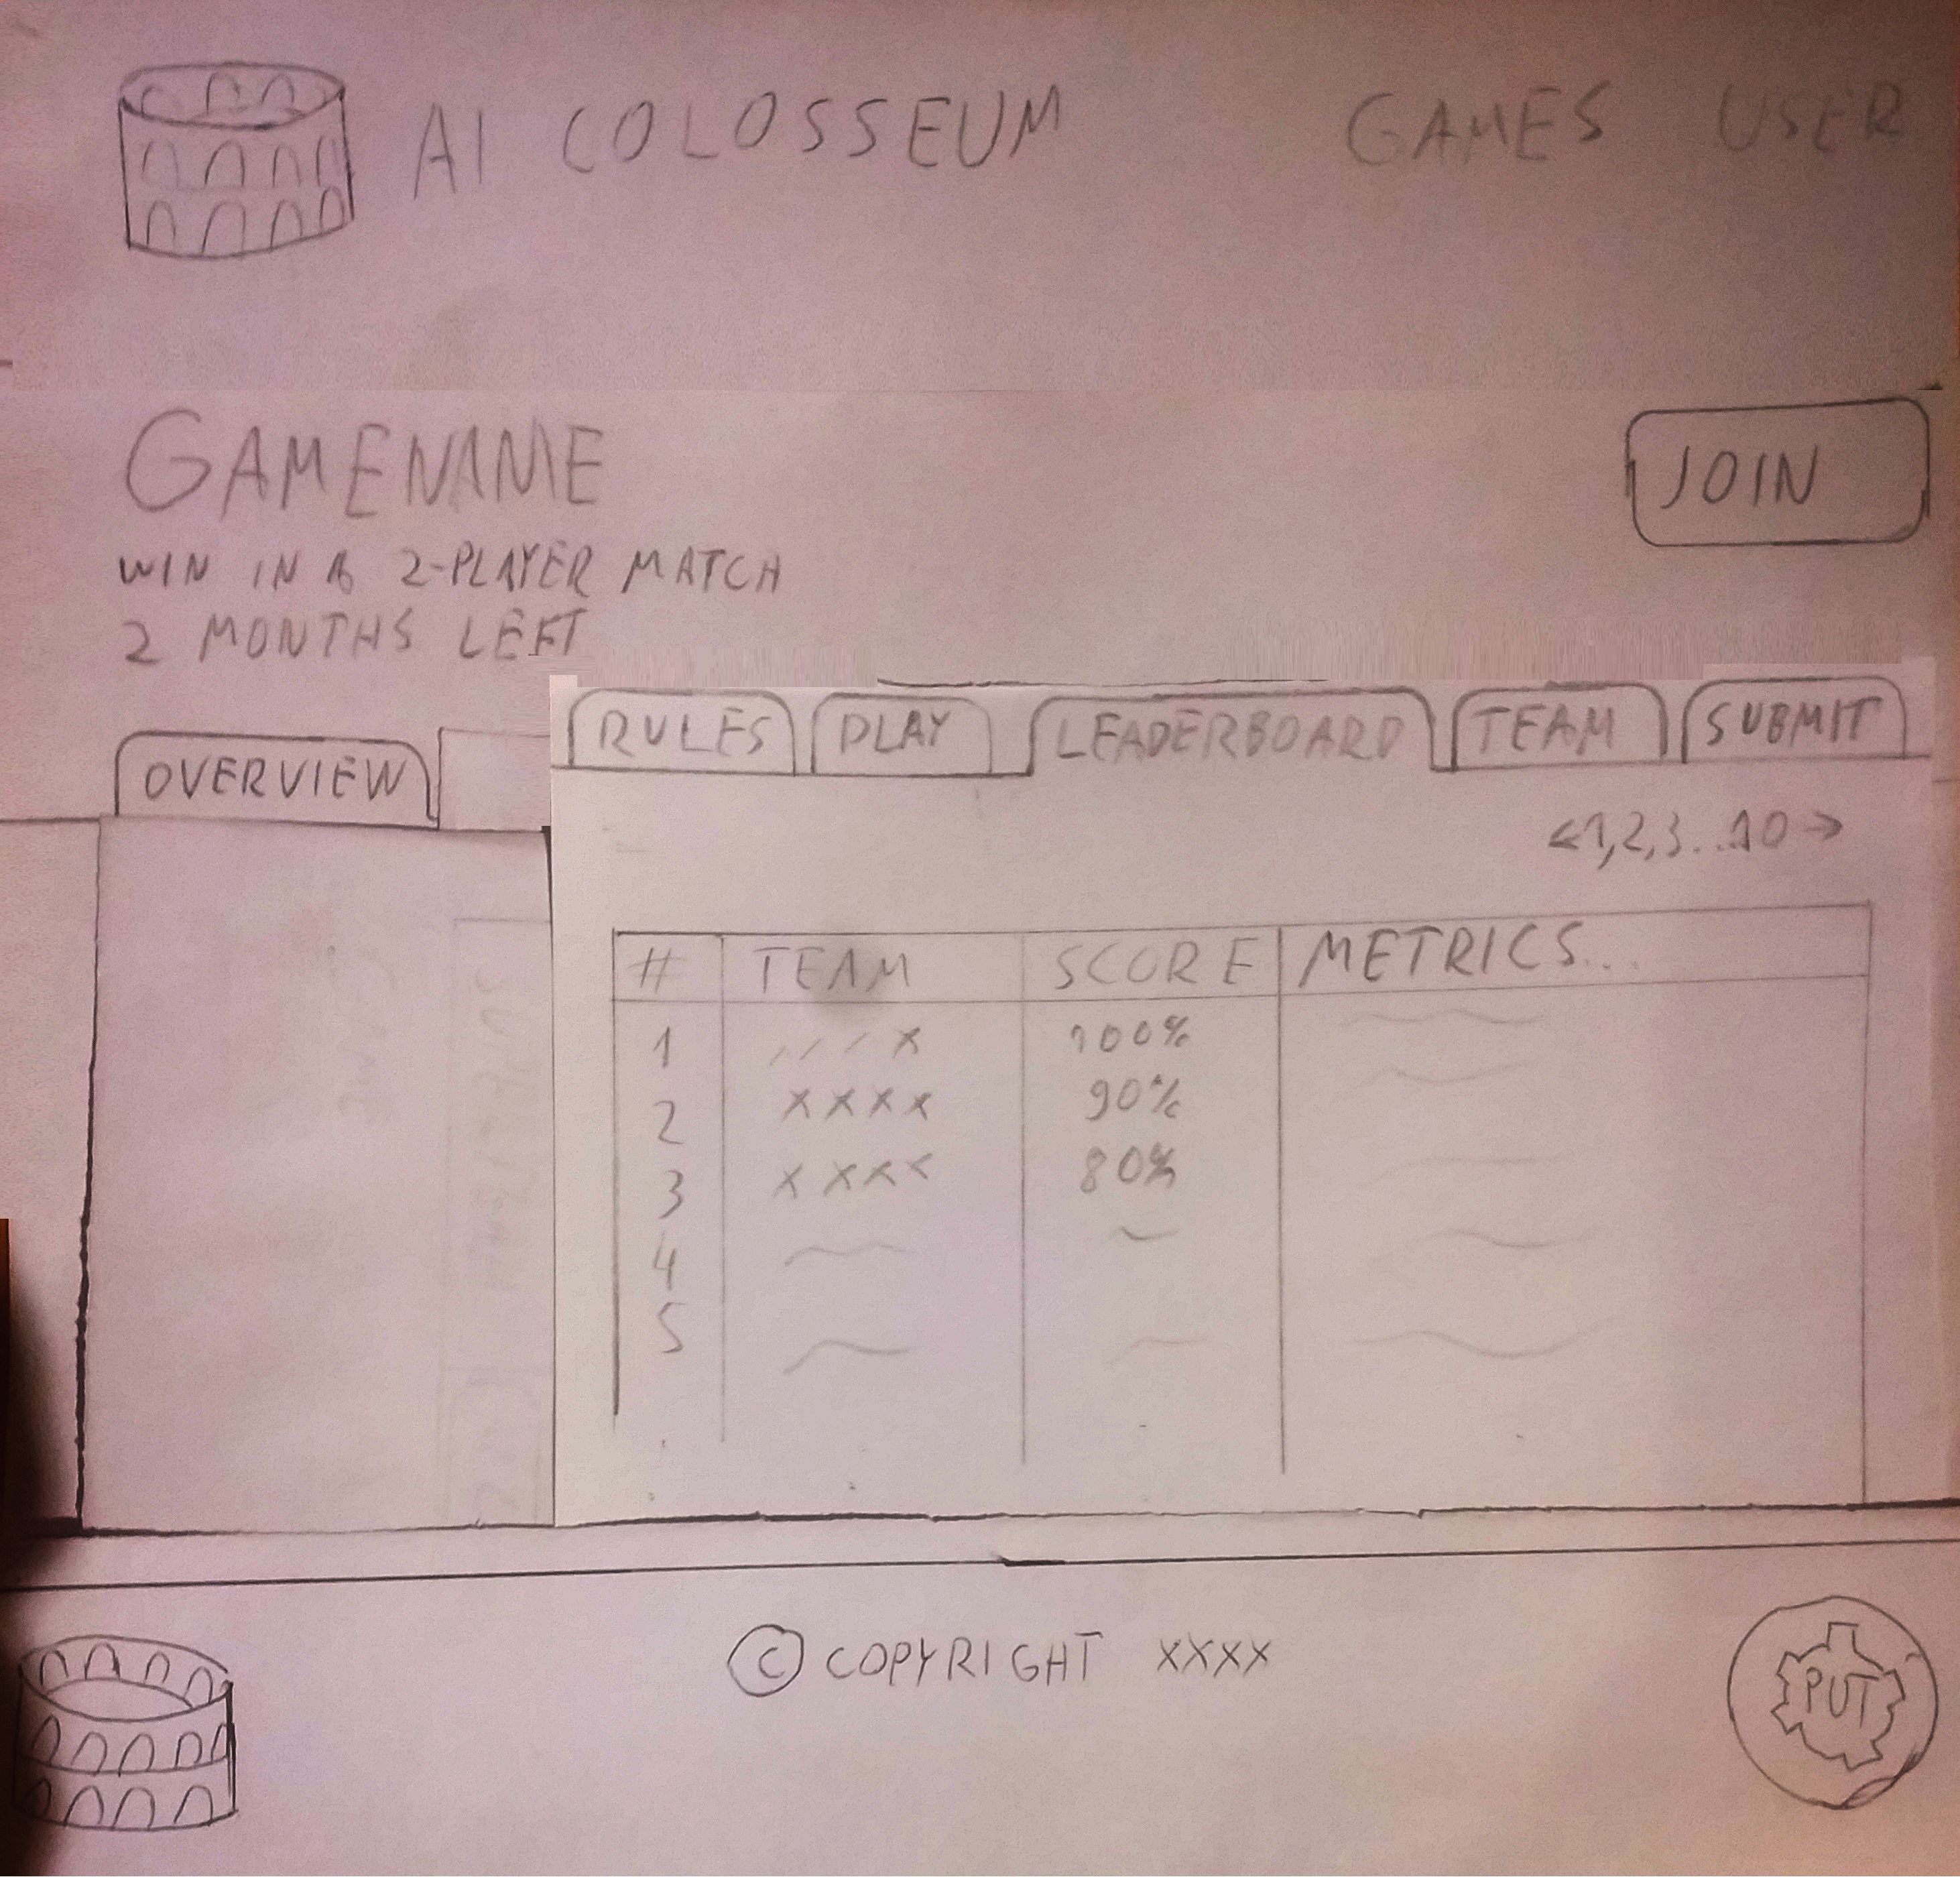 AI COLOSSEUM GAMES USER
GAMENAME
JOIN
WIN IN A 2-PLAYER MATCH
2 MONTHS LEFT
OVERVIEW RULES PLAY LEADERBOARD TEAM SUBMIT
<1,2,3...10→
# TEAM SCORE METRICS...
1 ///x 100%
2 xxxx 90%
3 xxxx 80%
4
5
© COPYRIGHT XXXX
PUT